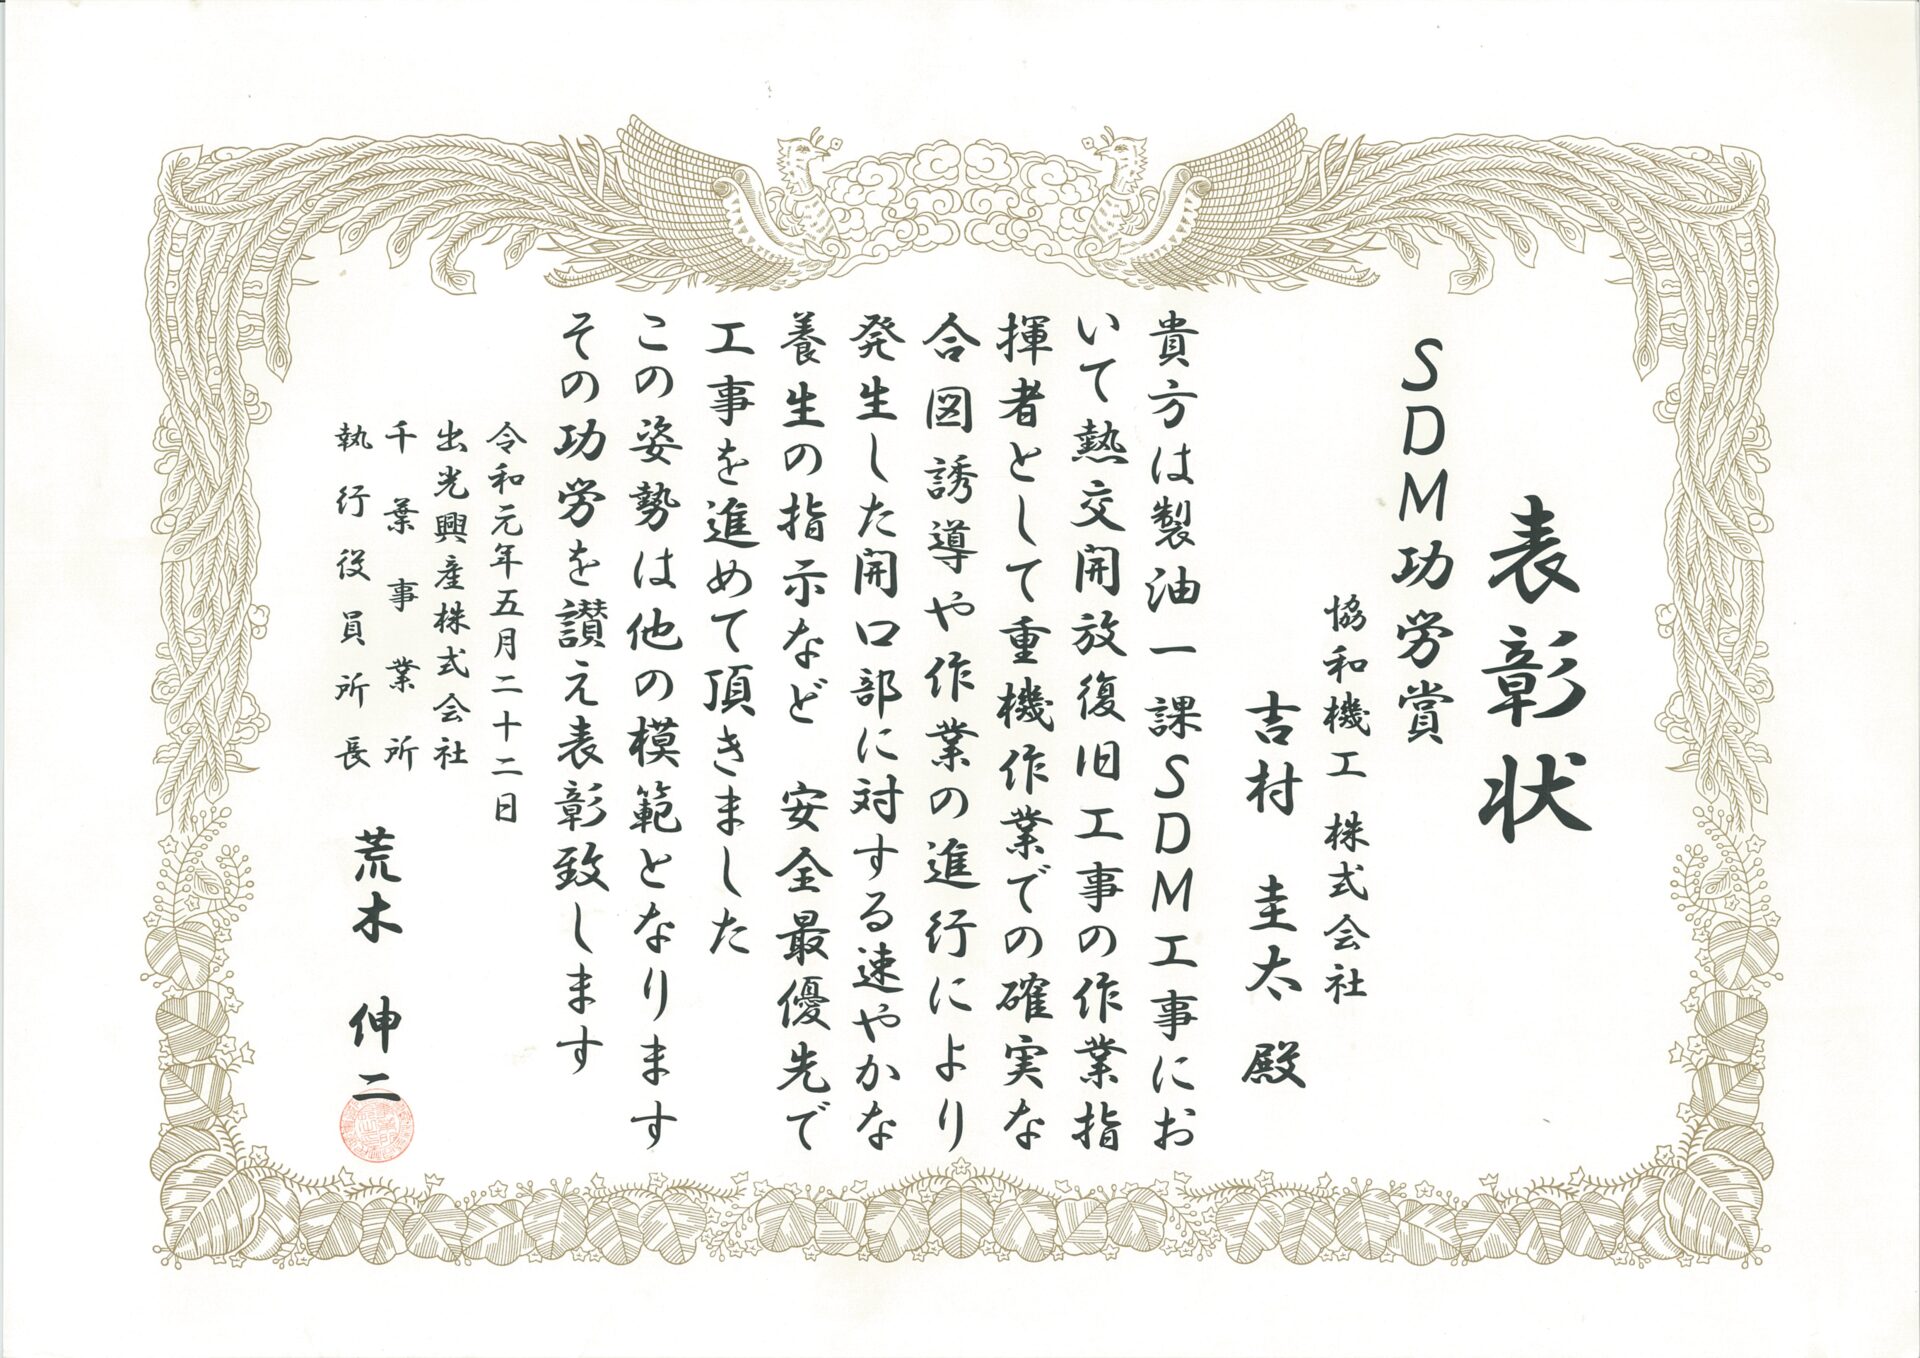 表彰状
SDM功労賞
協和機工 株式会社
吉村 圭太 殿
貴方は製油一課SDM工事にお
いて熱交開放復旧工事の作業指
揮者として重機作業での確実な
合図誘導や作業の進行により
発生した開口部に対する速やかな
養生の指示など 安全最優先で
工事を進めて頂きました
この姿勢は他の模範となります
その功労を讃え表彰致します
令和元年五月二十二日
出光興産株式会社
千葉事業所
執行役員所長 荒木 伸二